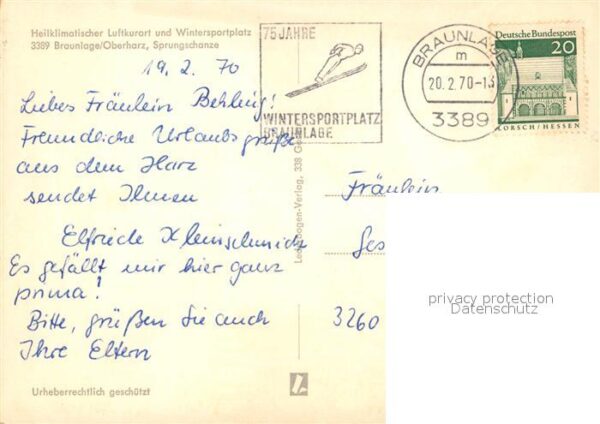 Heilklimatischer Luftkurort und Wintersportplatz
3389 Braunlage/Oberharz, Sprungschanze
75 JAHRE
WINTERSPORTPLATZ
BRAUNLAGE
BRAUNLAGE
m
20.2.70-13
3389
Deutsche Bundespost
20
LORSCH/HESSEN
19.2.70
Liebes Fräulein Behling!
Freundliche Urlaubsgrüße
aus dem Harz
sendet Ihnen
Elfriede Kleinschmidt
Es gefällt mir hier ganz
prima!
Bitte, grüßen Sie auch
Ihre Eltern
Fräulein
Ges
3260
-Verlag, 338
privacy protection
Datenschutz
Urheberrechtlich geschützt